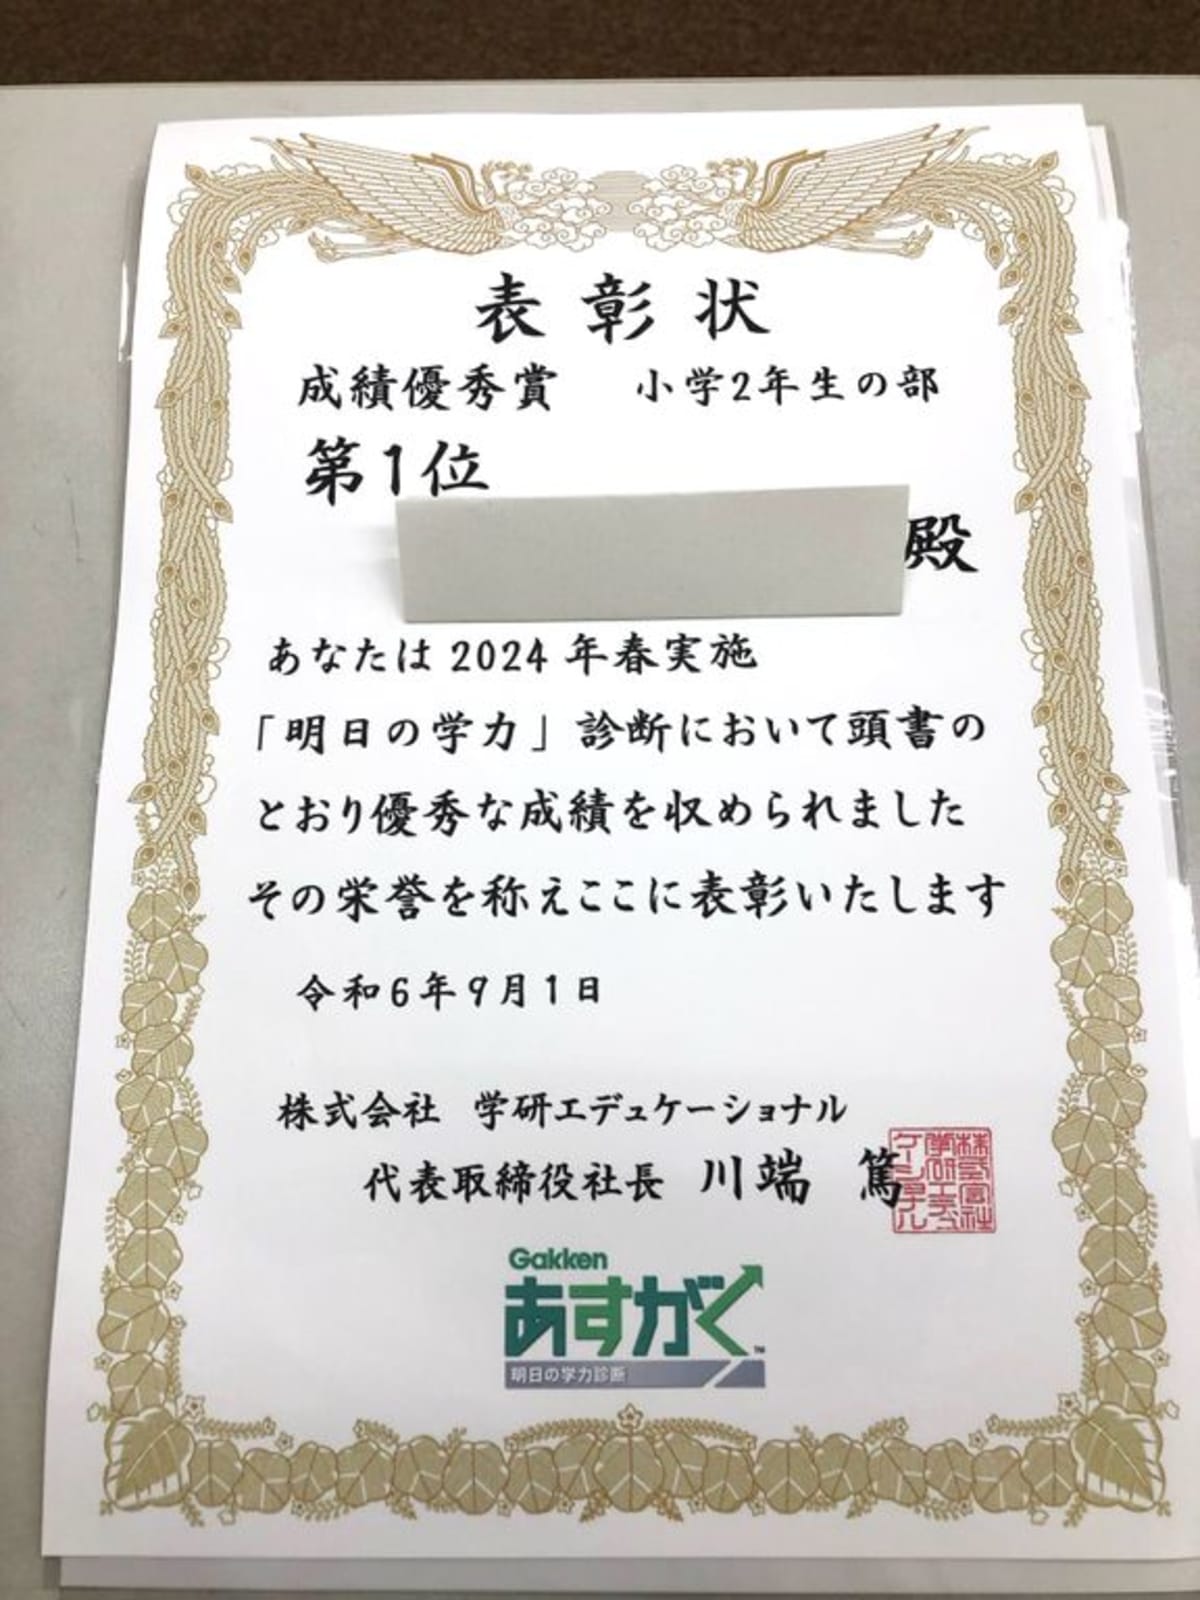 表彰状
成績優秀賞 小学2年生の部
第1位
殿
あなたは2024年春実施
「明日の学力」診断において頭書の
とおり優秀な成績を収められました
その栄誉を称えここに表彰いたします
令和6年9月1日
株式会社 学研エデュケーショナル
代表取締役社長 川端 篤
株式会社学研エデュケーショナル
Gakken
あすがく™
明日の学力診断